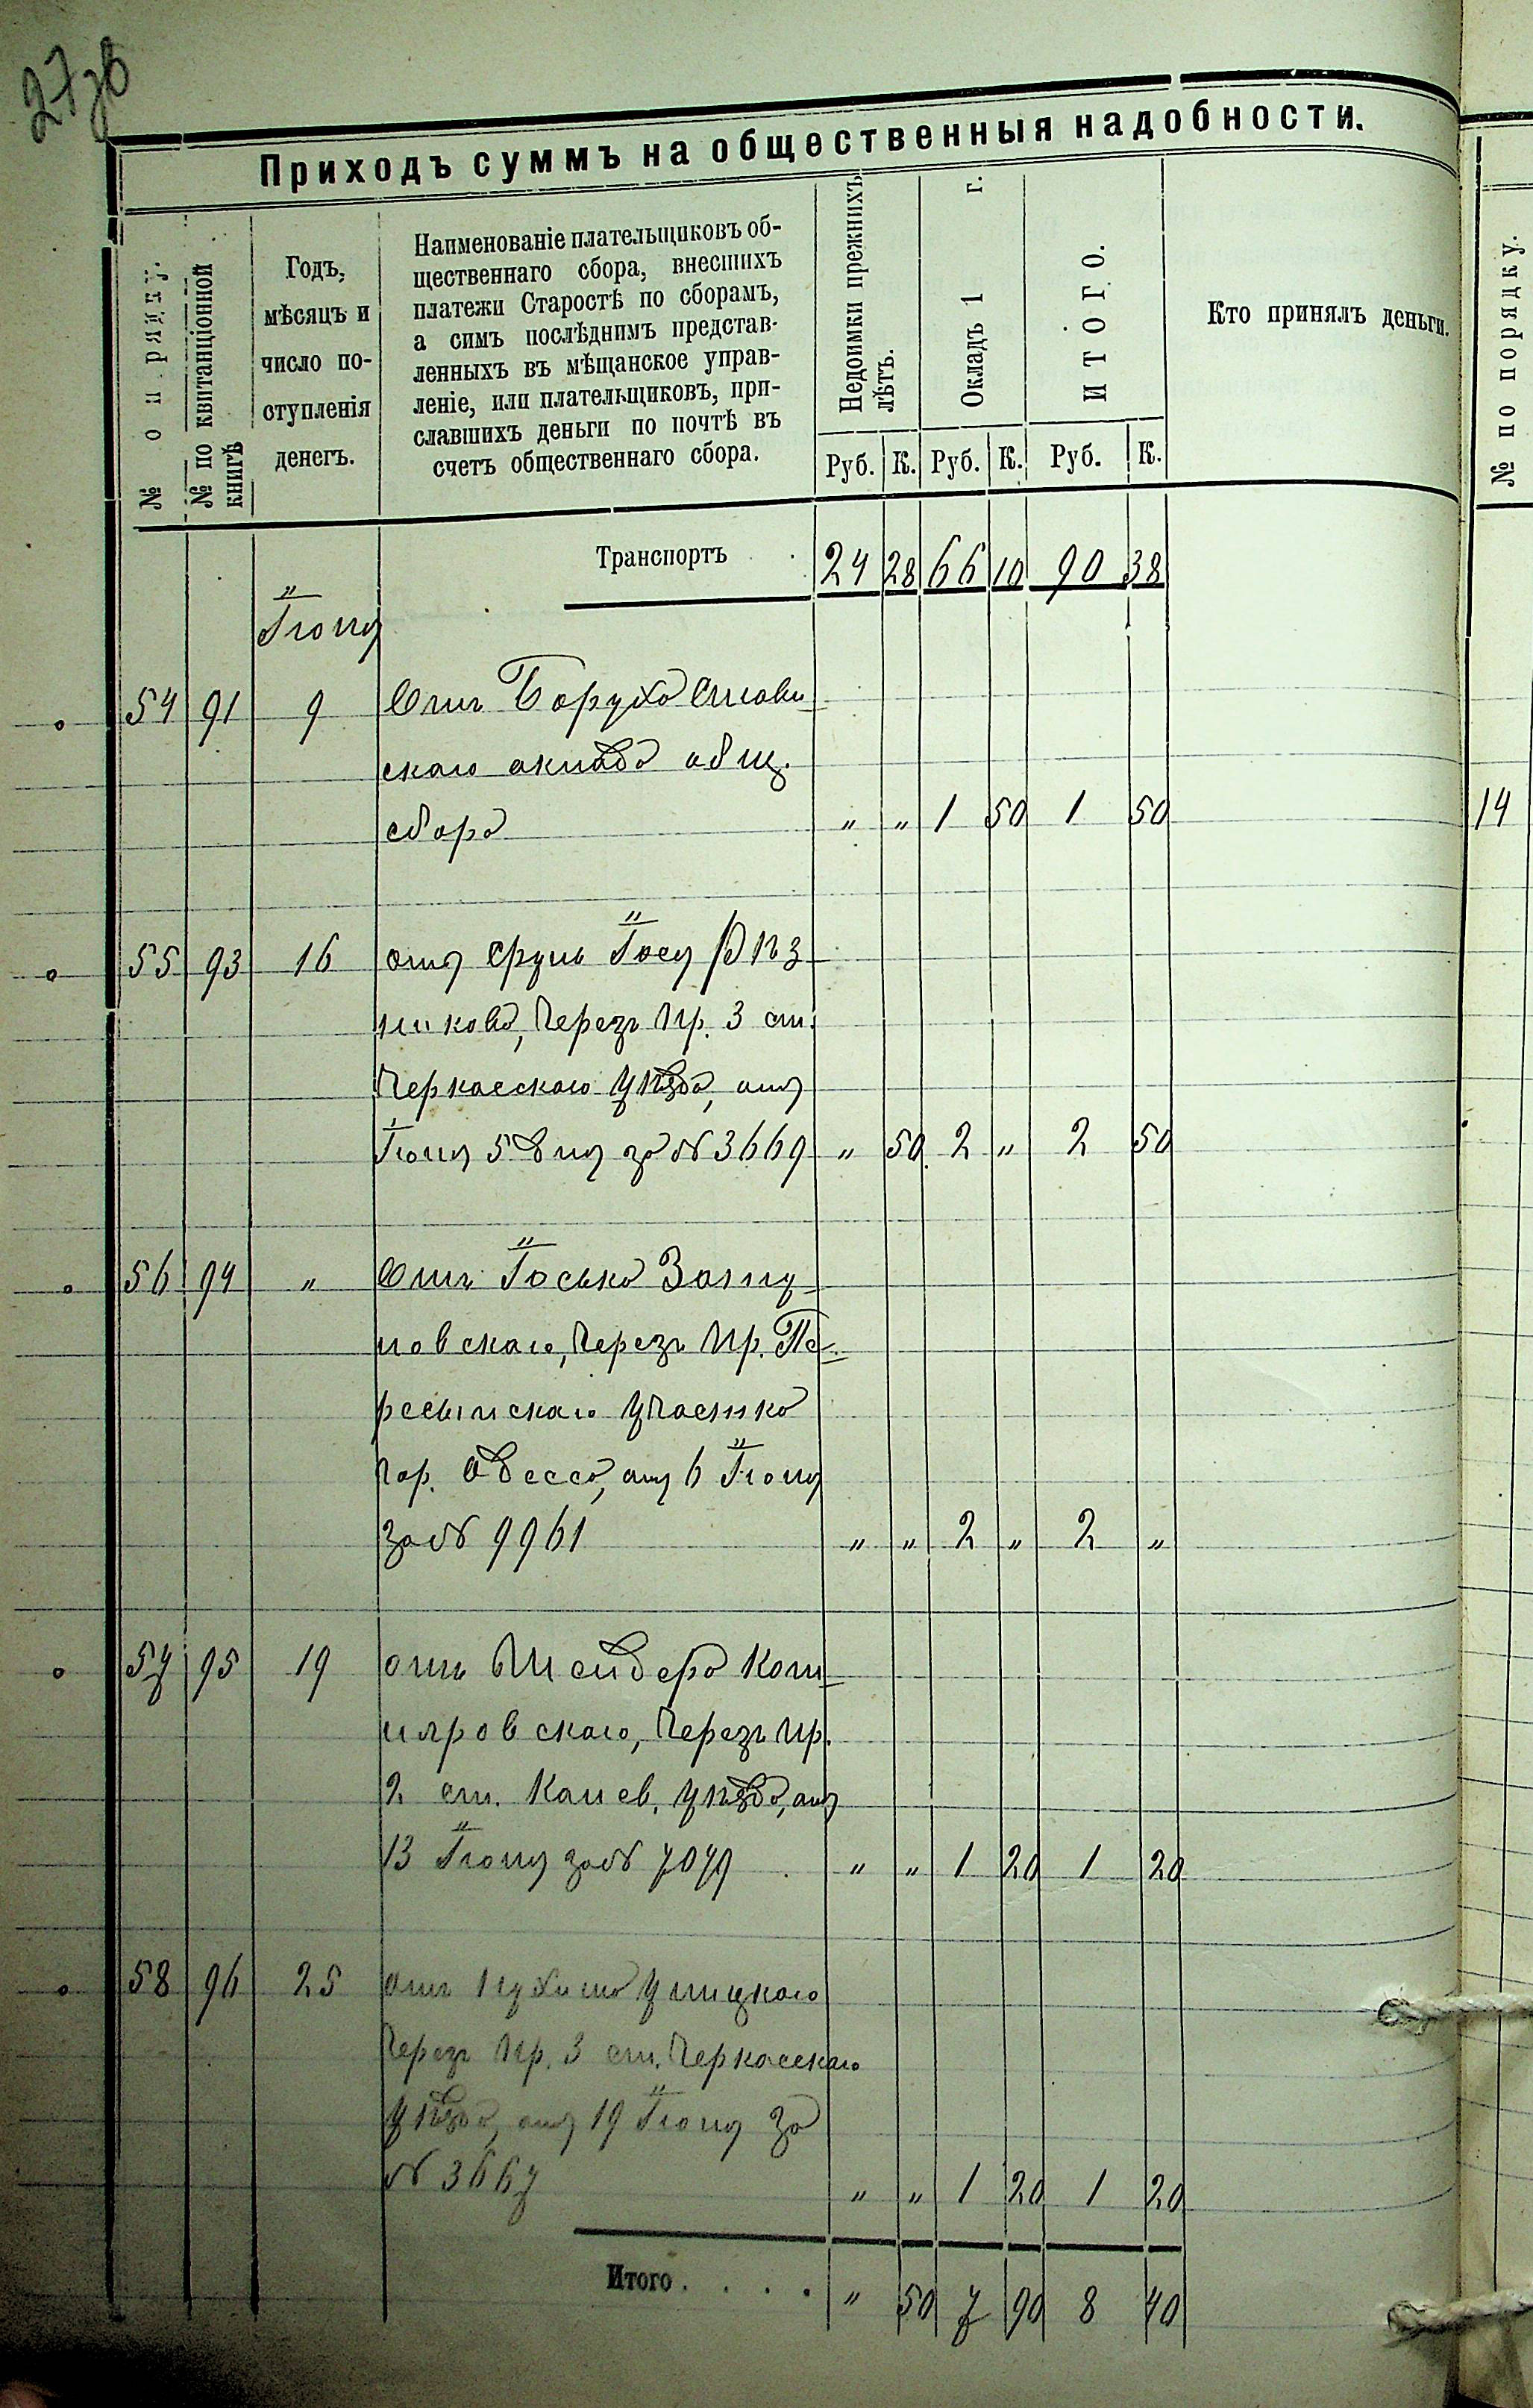 27об
Приходъ суммъ на общественныя надобности.
№ по порядку.
№ по квитанціонной книгѣ
Годъ, мѣсяцъ и число поступленія денегъ.
Наименованіе плательщиковъ об-
щественнаго сбора, внесшихъ
платежи Старостѣ по сборамъ,
а симъ послѣднимъ представ-
ленныхъ въ мѣщанское управ-
леніе, или плательщиковъ, при-
славшихъ деньги по почтѣ въ
счетъ общественнаго сбора.
Недоимки прежнихъ лѣтъ.
Окладъ 1 г.
ИТОГО.
Кто принялъ деньги.
Руб. К. Руб. К. Руб. К.
Транспортъ 24 28 66 10 90 38
Іюня
54 91 9 Отъ Боруха
скаго оклада общ.
сбора " " 1 50 1 50
55 93 16 отъ Сруль Іося Рѣз
никова, Через Пр. 3 ст.
Черкасскаго уѣзда, отъ
Іюня 5 дня за № 3669 " 50 2 " 2 50
56 94 " Отъ Іоська Заслу
новскаго, Через Пр. Пе
ресыпскаго участка
гор. Одесса, отъ 6 Іюня
за № 9961 " " 2 " 2 "
57 95 19 отъ Шендера Кот
ляровскаго, Через Пр.
2 ст. Канев. уѣзда, отъ
13 Іюня за № 7079 " " 1 20 1 20
58 96 25 отъ Нухима Улицкаго
Через Пр. 3 ст. Черкасскаго
уѣзда, отъ 19 Іюня за
№ 3667 " " 1 20 1 20
Итого . . . . " 50 7 90 8 40
№ по порядку.
14